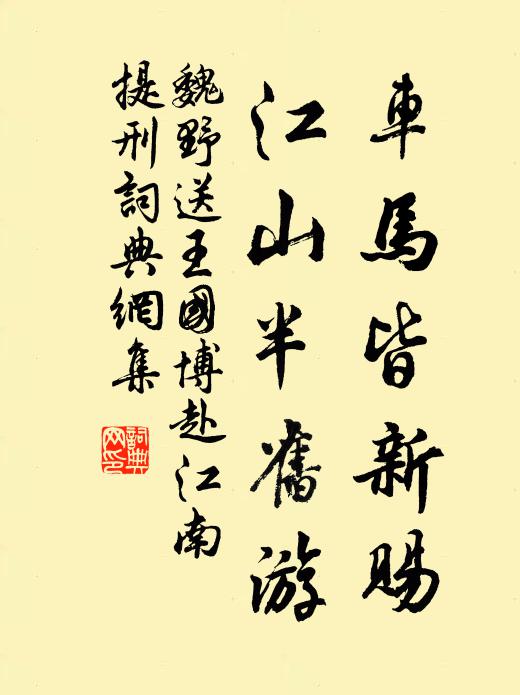 車馬皆新賜
江山半舊游
魏野送王國博赴江南
提刑詞典網集
詞典
网印